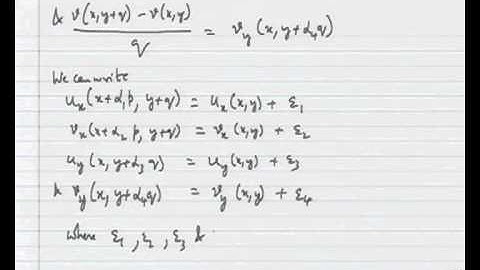 & v(x,y+q) - v(x,y) / q = v_y (x, y+α₄q)
We can write
u_x (x+α₁p, y+q) = u_x (x,y) + ε₁
v_x (x+α₂p, y+q) = v_x (x,y) + ε₂
u_y (x, y+α₃q) = u_y (x,y) + ε₃
& v_y (x, y+α₄q) = v_y (x,y) + ε₄
where ε₁, ε₂, ε₃ &